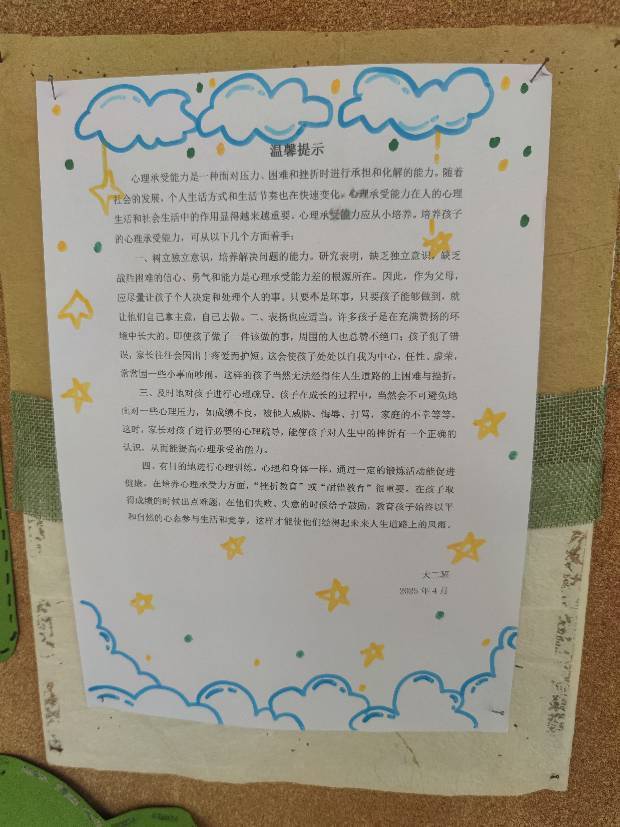 温馨提示
心理承受能力是一种面对压力、困难和挫折时进行承担和化解的能力。随着
社会的发展，个人生活方式和生活节奏也在快速变化，心理承受能力在人的心理
生活和社会生活中的作用显得越来越重要。心理承受能力应从小培养。培养孩子
的心理承受能力，可从以下几个方面着手：
一、树立独立意识，培养解决问题的能力。研究表明，缺乏独立意识，缺乏
战胜困难的信心、勇气和能力是心理承受能力差的根源所在。因此，作为父母，
应尽量让孩子个人决定和处理个人的事，只要不是坏事，只要孩子能够做到，就
让他们自己拿主意，自己去做。二、表扬也应适当。许多孩子是在充满赞扬的环
境中长大的，即使孩子做了一件该做的事，周围的人也总赞不绝口；孩子犯了错
误，家长往往会因出于疼爱而护短。这会使孩子处处以自我为中心，任性、虚荣，
常常因一些小事而吵闹。这样的孩子当然无法经得住人生道路的上困难与挫折。
三、及时地对孩子进行心理疏导。孩子在成长的过程中，当然会不可避免地
面对一些心理压力，如成绩不良、被他人威胁、侮辱、打骂，家庭的不幸等等。
这时，家长对孩子进行必要的心理疏导，能使孩子对人生中的挫折有一个正确的
认识，从而能提高心理承受的能力。
四、有目的地进行心理训练。心理和身体一样，通过一定的锻炼活动能促进
健康。在培养心理承受力方面，“挫折教育”或“耐错教育”很重要。在孩子取
得成绩的时候出点难题，在他们失败、失意的时候给予鼓励，教育孩子始终以平
和自然的心态参与生活和竞争，这样才能使他们经得起未来人生道路上的风雨。
大二班
2025 年 4 月